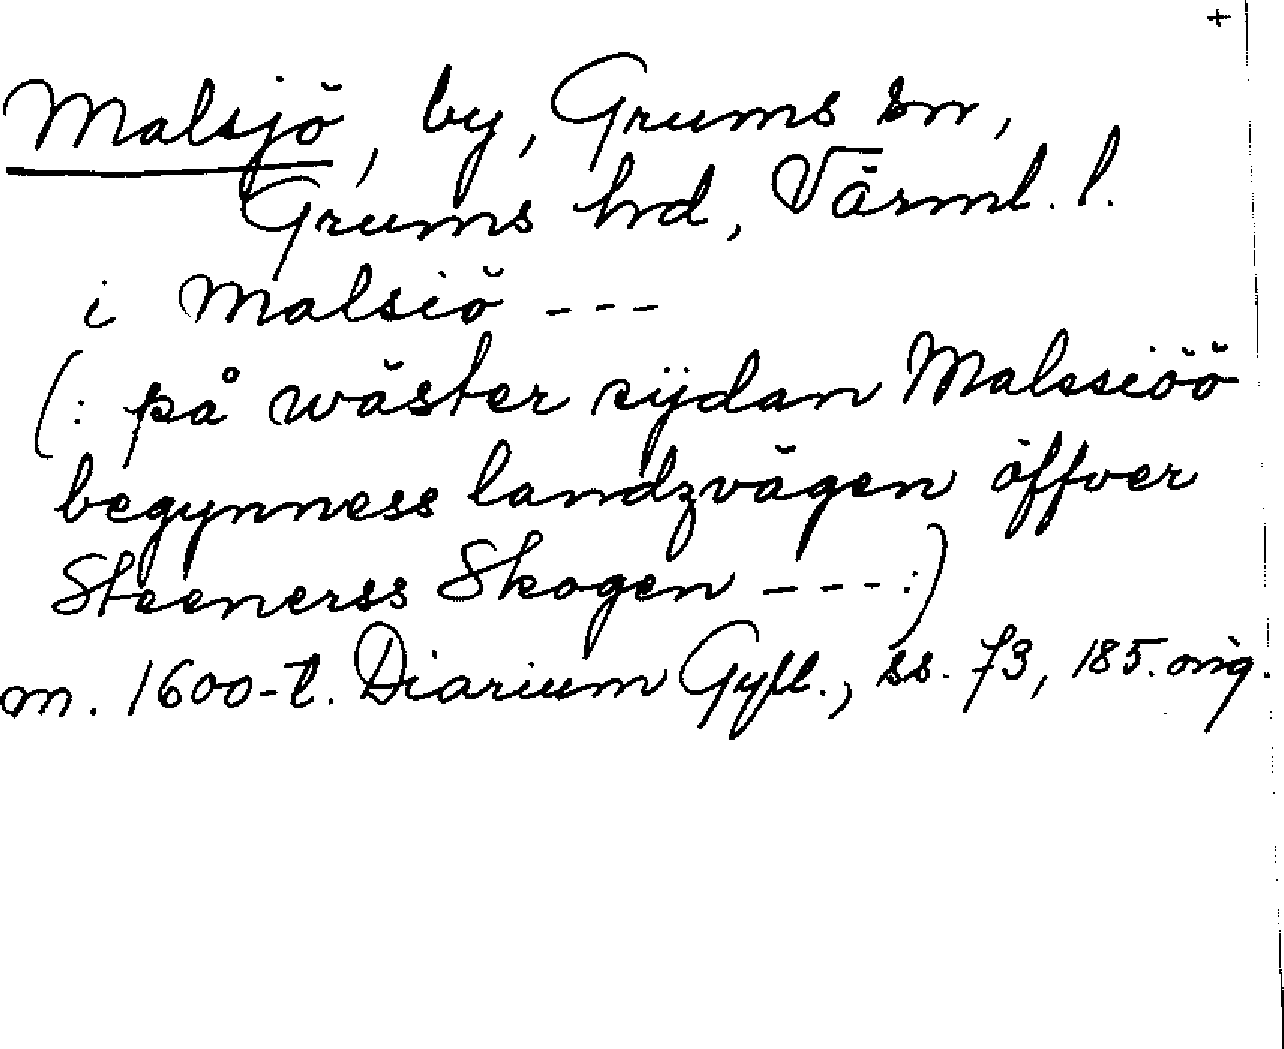 +
Malsjö, by, Grums sn,
Grums hd, Värml. l.
i Malsiö ---
(: på wäster sijdan Malssiöö
begynness landzvägen öffver
Steenerss Skogen ---:)
m. 1600-t. Diarium Gyll., ss. 73, 185. orig.